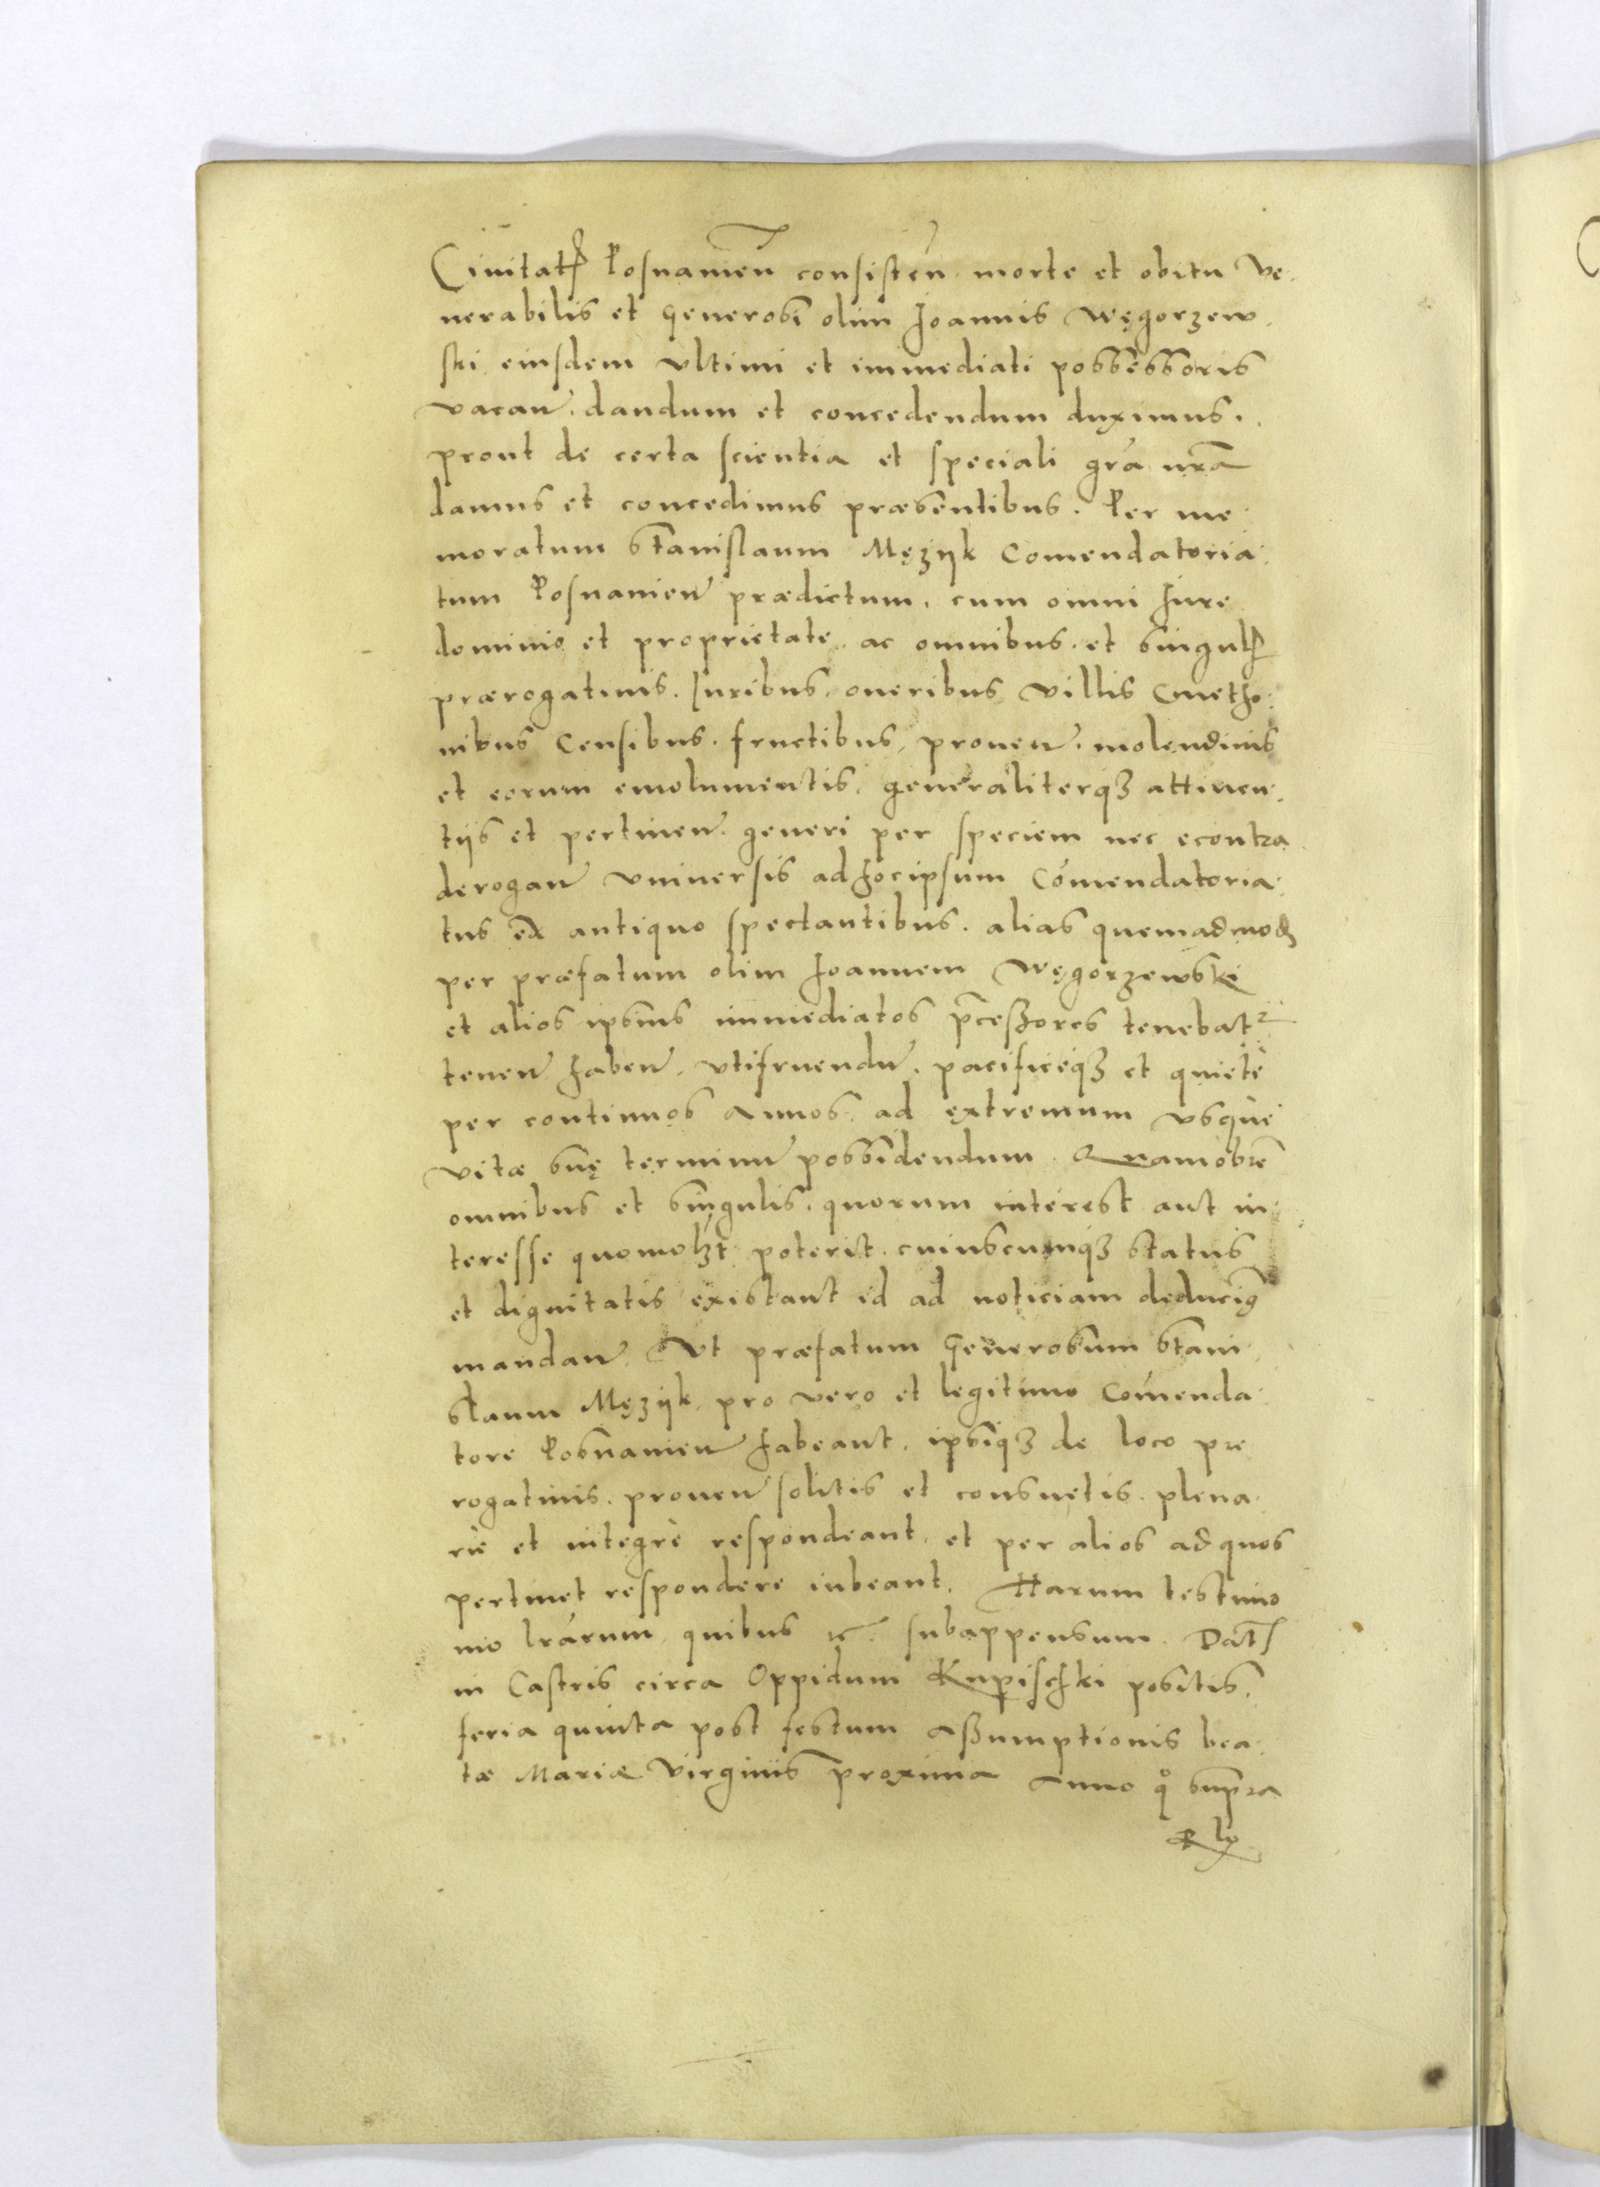 Ciuitatis Posnanien consisten morte et obitu Ve-
nerabilis et Generosi olim Joannis Węgorzew-
ski eiusdem vltimi et immediati possessoris
vacan. dandum et concedendum duximus.
prout de certa scientia et speciali gra nra
damus et concedimus præsentibus. Per me-
moratum Stanislaum Męzyk Comendatoria-
tum Posnanien prædictum, cum omni Jure
dominio et proprietate, ac omnibus et singulis
prærogatiuis. Iuribus, oneribus villis Cmetho-
nibus Censibus. fructibus, prouen. molendinis
et eorum emolumentis, generaliterq3 attinen-
tijs et pertinen. generi per speciem nec econtra
derogan vniuersis ad hoc ipsum Comendatoria-
tus ex antiquo spectantibus. alias quemadmod
per præfatum olim Joannem Węgorzewski
et alios ipsius immediatos pcessores tenebat
tenen haben. vtifruendu. pacificeq3 et quietè
per continuos Annos ad extremum vsque
vitæ suę terminu possidendum. Quamobre
omnibus et singulis, quorum interest aut in-
teresse quomolibet poterit. cuiuscumq3 status
et dignitatis existant id ad noticiam deducimus
mandan. Vt præfatum Generosum Stani-
slaum Męzyk, pro vero et legitimo Comenda-
tore Posnanien habeant. ipsiq3 de loco præ
rogatiuis. prouen solitis et consuetis. plena-
rie et integrè respondeant. et per alios ad quos
pertinet respondere iubeant. Harum testimo
nio lrarum quibus etc. subappensum. Dat
in Castris circa Oppidum Kupischki positis,
feria quinta post festum Assumptionis bea-
tæ Mariæ Virginis proxima Anno qo supra